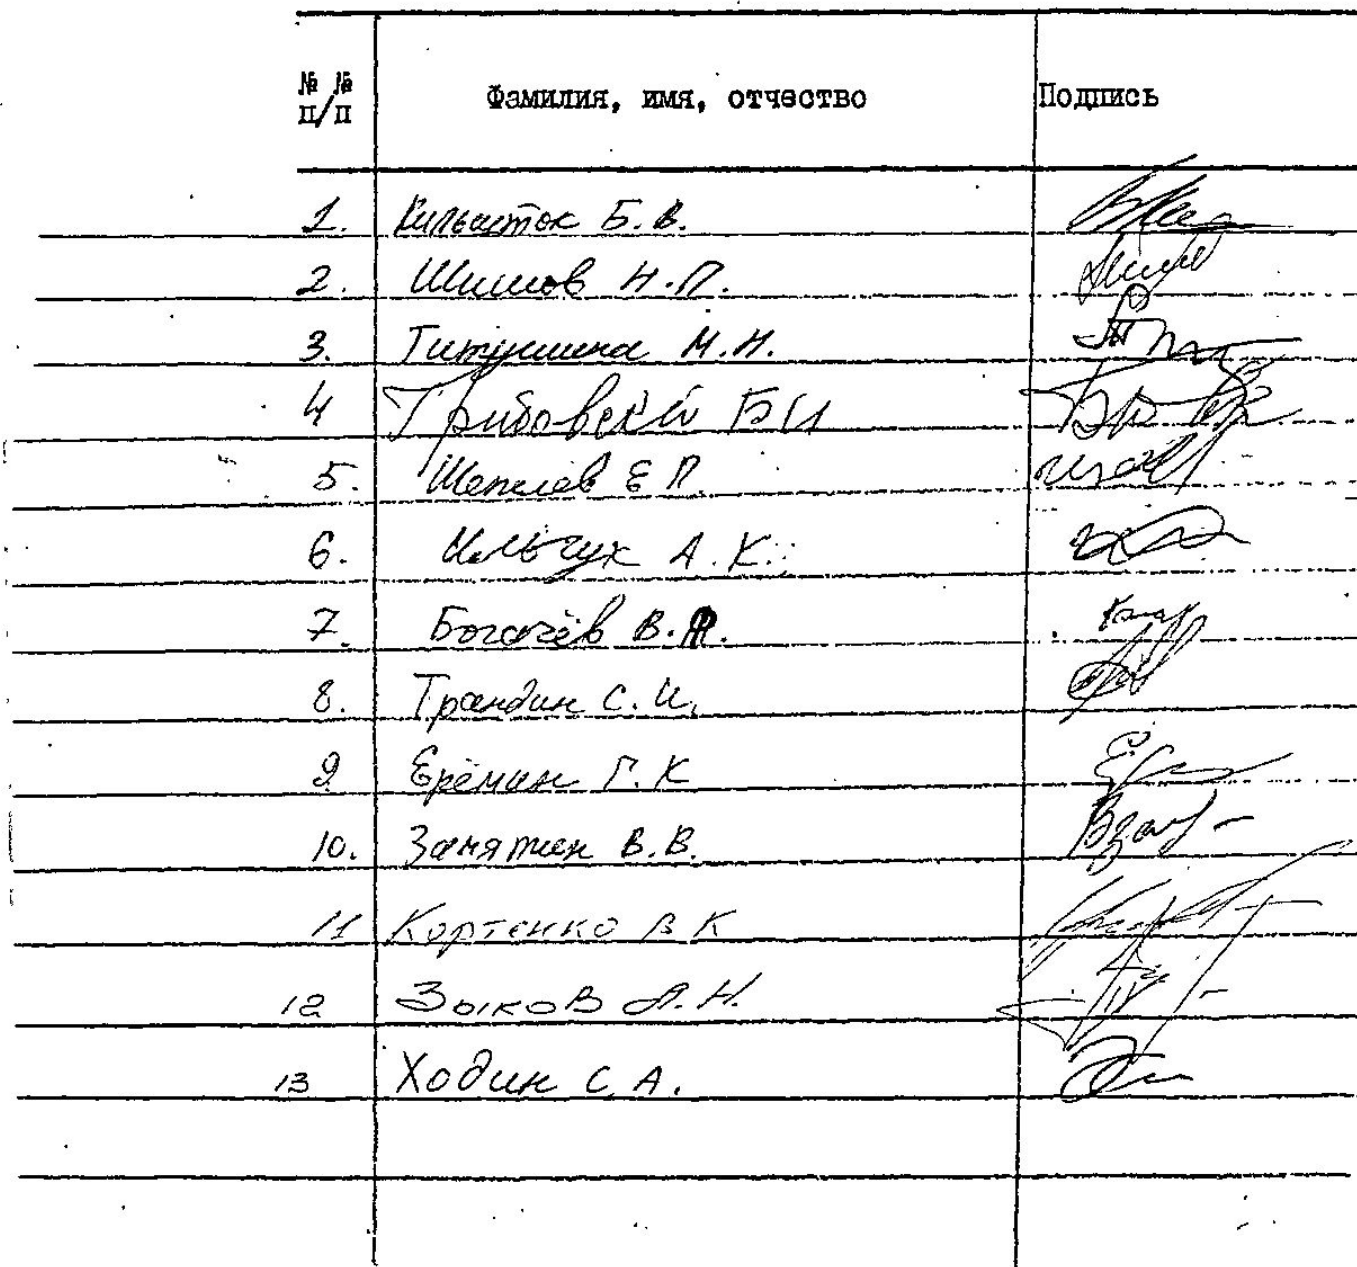 № № п/п Фамилия, имя, отчество Подпись
1. Кильшток Б.В.
2. Шишов Н.П.
3. Титушина М.Н.
4 Грибовский БИ
5. Шепелев Е П.
6. Ильчук А.К.
7. Богачёв В.Я.
8. Трандин С.И.
9 Ерёмин Г.К
10. Занятин В.В.
11 Кортенко В К
12 Зыков А.Н.
13 Ходин С.А.